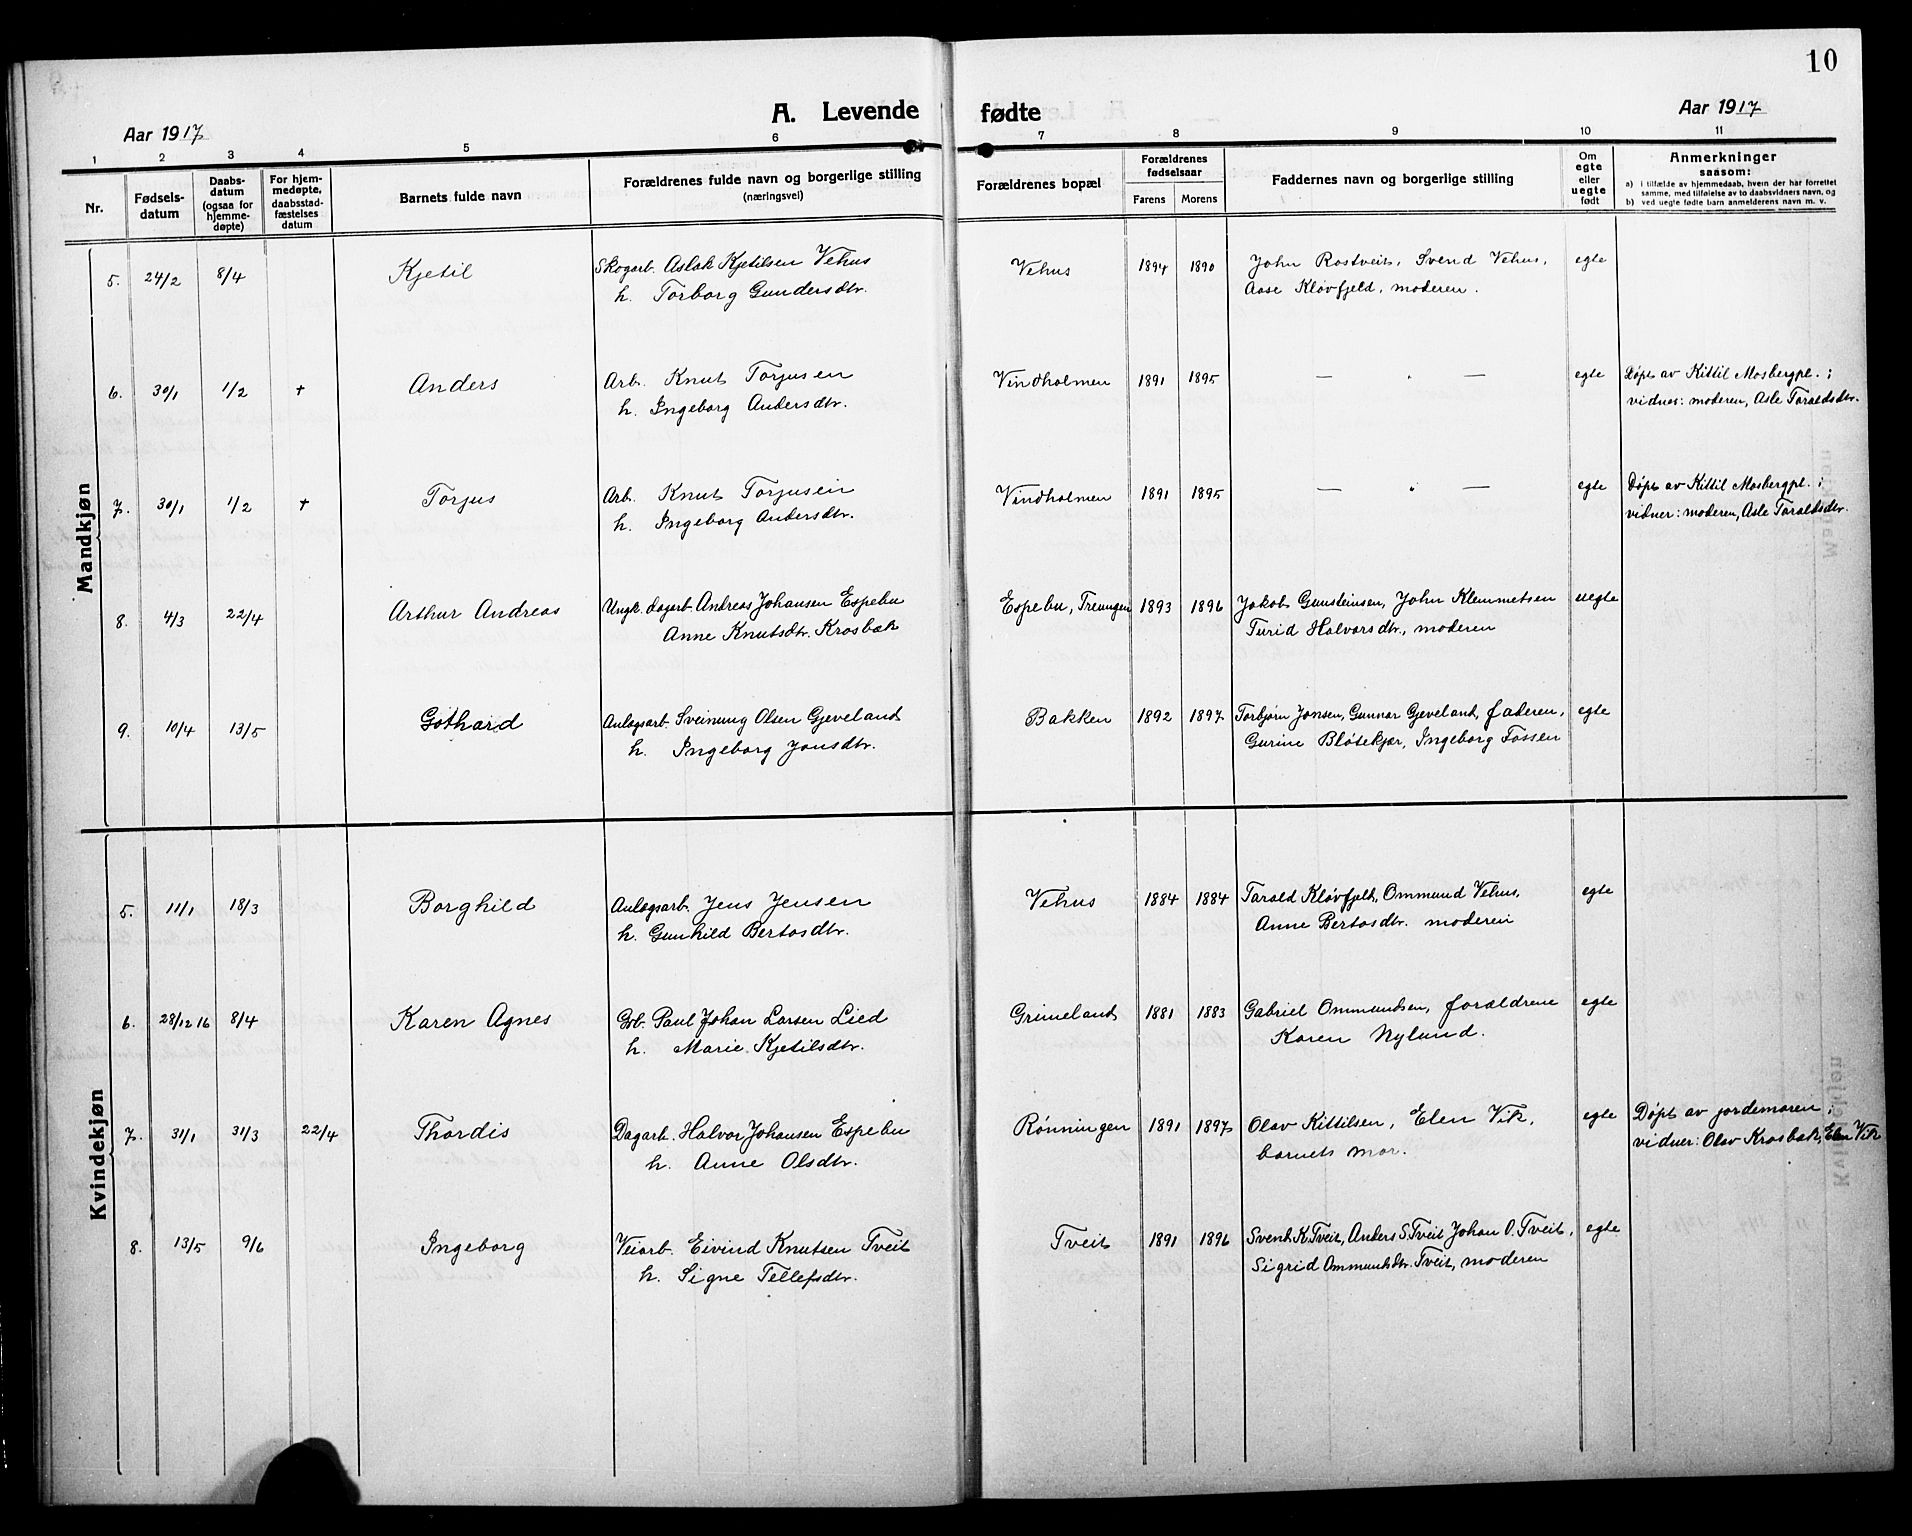 10
A. Levende fødte
Aar 1917
Aar 1917
1 2 3 4 5 6 7 8 9 10 11
Nr.
Fødsels-
datum
Daabs-
datum
(ogsaa for
hjemme-
døpte)
For hjem-
medøpte,
daabsstad-
fæstelses
datum
Barnets fulde navn
Forældrenes fulde navn og borgerlige stilling
(næringsvei)
Forældrenes bopæl
Forældrenes
fødselsaar
Farens Morens
Faddernes navn og borgerlige stilling
Om
egte
eller
uegte
født
Anmerkninger
saasom:
a) i tilfælde av hjemmedaab, hvem der har forrettet
samme, med tilføielse av to daabsvidners navn, og
b) ved uegte fødte barn anmelderens navn m. v.
Mandkjøn
5. 24/2 8/4 Kjetil Skogarb. Aslak Kjetilsen Vehus Vehus 1894 1890 John Rostveit, Svend Vehus, egte
h. Torborg Gundersdtr. Aase Kløvfjeld, moderen.
6. 30/1 1/2 + Anders Arb. Knut Torjusen Vindholmen 1891 1895 — " — egte Døpt av Kittil Mosbergpl.;
h. Ingeborg Andersdtr. vidner: moderen, Asle Taraldsdtr.
7. 30/1 1/2 + Torjus Arb. Knut Torjusen Vindholmen 1891 1895 — " — egte Døpt av Kittil Mosbergpl.;
h. Ingeborg Andersdtr. vidner: moderen, Asle Taraldsdtr.
8. 4/3 22/4 Arthur Andreas Ungk. dagarb. Andreas Johansen Espebu Espebu, Treungen 1893 1896 Jakob Gunsteinsen, John Klemmetsen uegte
Anne Knutsdtr. Krosbak Turid Halvorsdtr., moderen
9. 10/4 13/5 Gothard Anlægsarb. Sveinung Olsen Gjeveland Bakken 1892 1897 Torbjørn Jonsen, Gunnar Gjeveland, faderen, egte
h. Ingeborg Jonsdtr. Gurine Bløtekjær, Ingeborg Fossen
Kvindekjøn
5. 11/1 18/3 Borghild Anlægsarb. Jens Jensen Vehus 1884 1884 Tarald Kløvfjeld, Ommund Vehus, egte
h. Gunhild Bertosdtr. Anne Bertosdtr. moderen
6. 28/12 16 8/4 Karen Agnes Grb. Paul Johan Larsen Lied Grimeland 1881 1883 Gabriel Ommundsen, forældrene egte
h. Marie Kjetilsdtr. Karen Nylund.
7. 31/1 31/3 22/4 Thordis Dagarb. Halvor Johansen Espebu Rønningen 1891 1897 Olav Kittilsen, Elen Vik, egte Døpt av jordemoren;
h. Anne Olsdtr. barnets mor. vidner: Olav Krosbak, Elen Vik
8. 13/5 9/6 Ingeborg Veiarb. Eivind Knutsen Tveit Tveit 1891 1896 Svend K. Tveit, Anders S. Tveit Johan O. Tveit, egte
h. Signe Tellefsdtr. Sigrid Ommundsdtr. Tveit, moderen